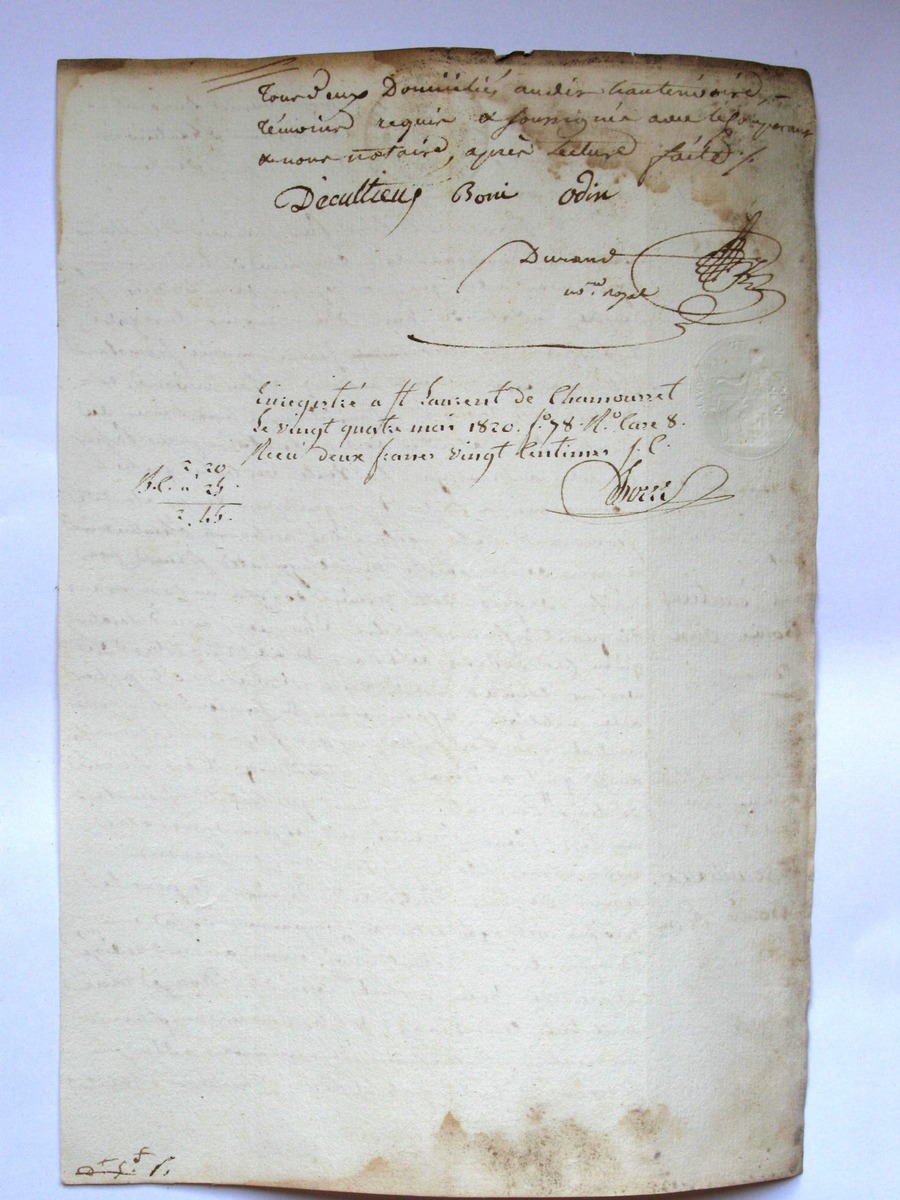 Tous deux Domiciliés audit hauterivoire,
témoins requis & soussignés avec le comparant
& nous notaire, après Lecture faite ./.
Décultieux Boni Odin
Durand
no.re royal
Enregistré a St Laurent de Chamousset
Le vingt quatre mai 1820. fo. 78. Ro. Case 8.
Recu deux francs vingt centimes s. c.
2, 20
25
2, 45.